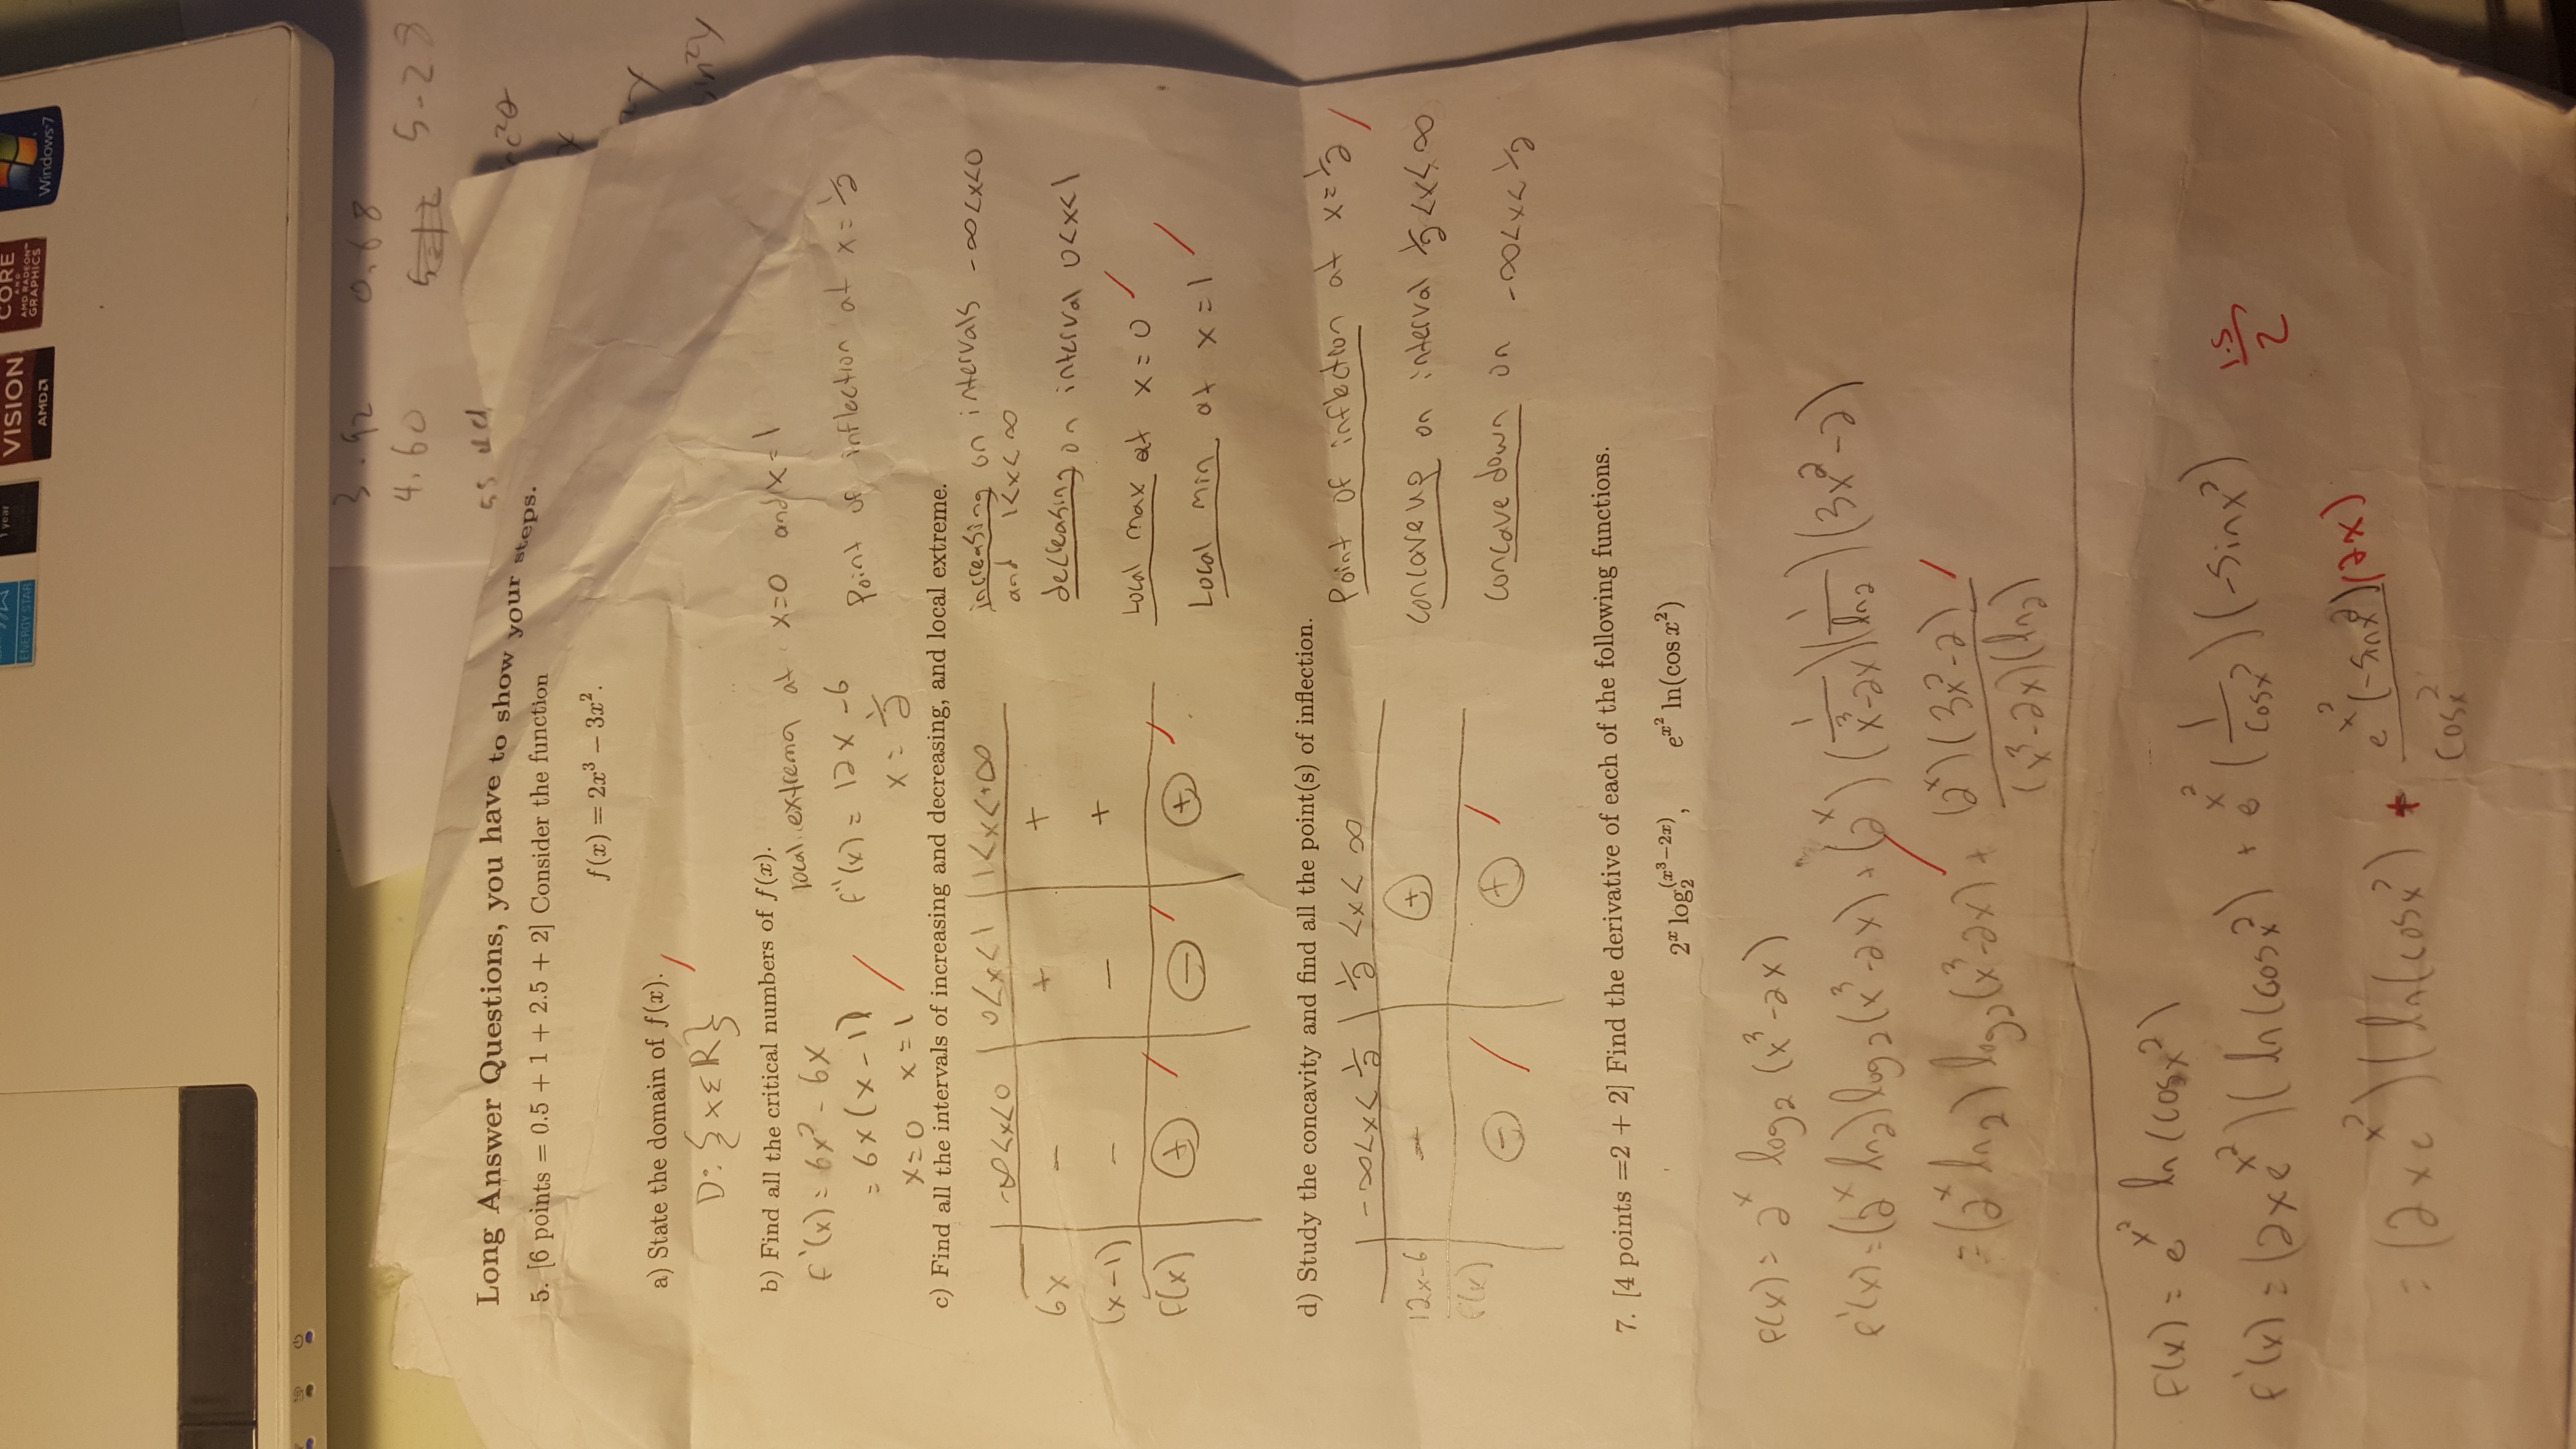 Windows 7
CORE
AND
AMD RADEON™
GRAPHICS
VISION
AMD
year
ENERGY STAR
3.92 0.68
4.60 5.28
sin²y
Long Answer Questions, you have to show your steps.
5. [6 points = 0.5 + 1 + 2.5 + 2] Consider the function
f(x) = 2x³ − 3x².
a) State the domain of f(x).
D: {xεR}
b) Find all the critical numbers of f(x).
f'(x) = 6x² - 6x
= 6x(x-1)
x=0 x=1
local extrema at x=0 and x=1
f''(x) = 12x-6
x = 1/2
Point of inflection at x = 1/2
c) Find all the intervals of increasing and decreasing, and local extreme.
-∞<x<0 | 0<x<1 | 1<x<+∞
6x - + +
(x-1) - - +
f(x) + - +
increasing on intervals -∞<x<0
and 1<x<∞
decreasing on interval 0<x<1
Local max at x=0
Local min at x=1
d) Study the concavity and find all the point(s) of inflection.
-∞<x<1/2 | 1/2<x<∞
12x-6 - +
f(x) - +
Point of inflection at x=1/2
concave up on interval 1/2<x<∞
concave down on -∞<x<1/2
7. [4 points =2 + 2] Find the derivative of each of the following functions.
2ˣ log₂^(x³−2x), e^x² ln(cos x²)
f(x) = 2ˣ log₂(x³-2x)
f'(x) = (2ˣ ln2) log₂(x³-2x) + (2ˣ)(1/(x³-2x))(1/ln2)(3x²-2)
= (2ˣ ln2) log₂(x³-2x) + (2ˣ)(3x²-2)/(x³-2x)(ln2)
f(x) = e^x² ln(cosx²)
f'(x) = (2xe^x²)(ln(cosx²)) + e^x² (1/cosx²)(-sinx²)
1.5/2
= (2xe^x²)(ln(cosx²)) + e^x²(-sinx²)(2x)/cosx²